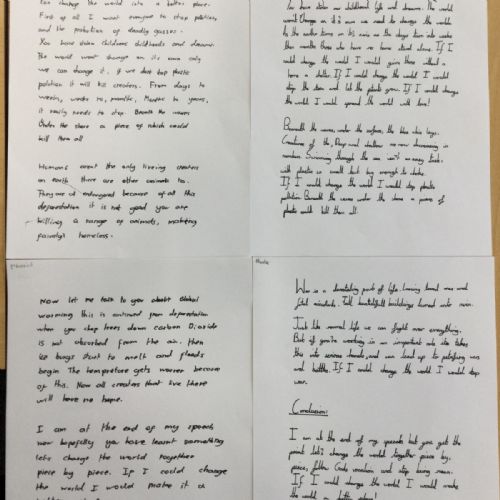 can change the world into a better place.
First of all I want everyone to stop polution,
and the probation of deadly gasses.
You have stolen childrens childhoods and dreams.
The world wont change on its own only
we can change it. if we dont stop plastic
polution it will be creaters. From days to
weeks, weeks to, months, Months to years,
it really needs to stop. Beneath the waves
Under the shore a piece of which could
kill them all
Humans arent the only liveing creaters
on earth there are other animals to.
They are so endangered because of all this
deforestation it is not good you are
killing a range of animals, making
family's homeless.
You have stolen our childhood life and dreams. The world
wont change on it's own we need to change the world.
months those who have no home stand alone. If I
could change the world I would give those without a
home a shelter. If I could change the world I would
stop the and let the plants grow. If I could change
the world I would spread the world with love!
Beneath the waves, under the surface, the blue whale lays.
Creatures of the Deep and shallow are now decreasing in
numbers. Swimming through the sea isn't an easy task
with plastic so small but big enough to choke.
If I could change the world I would stop plastic
pollution. Beneath the waves under the shore a piece of
plastic could kill them all.
Now let me talk to you about Global
warming this is continued from deforestation
when you chop trees down carbon Dioxide
is not absorbed from the air. then
ice bergs start to melt and floods
begin The temprature gets warmer because
of this. Now all creaters that live there
will have no hope.
I am at the end of my speech
now hopefully you have learnt something
lets change the world together
piece by piece. If I could change
the world I would make it a
War is a devastating part of life. Leaving loved ones and
fatal misdeeds. Tall beautiful buildings turned into ruin.
Just like normal life we can fight over everything.
But if you're working in an important role
this into serious and can lead up to petrifying wars
and battles. If I could change the world I would stop
war.
Conclusion:
I am at the end of my speech but you get the
point let's change the world together piece by
piece, follow Gods and stop being mean.
If I would change the world I would make
the world a better place!